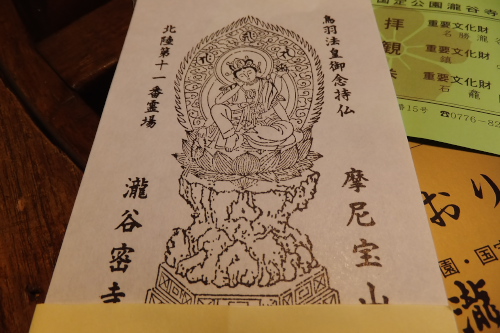 鳥羽法皇御念持仏
北陸第十一番霊場
摩尼宝山
瀧谷密寺
国定公園瀧谷寺
拝観
重要文化財
名勝瀧谷寺
重要文化財
鎮
重要文化財
石龕
番15号 ☎0776-82
おり
園・国宝
瀧